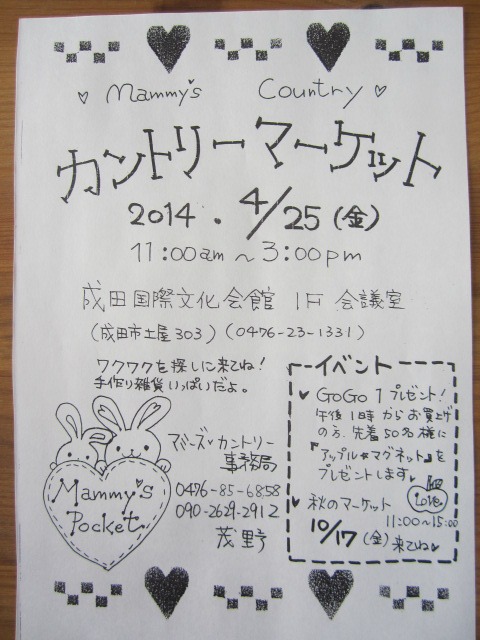 ♡ Mammy's Country ♡
カントリーマーケット
2014. 4/25 (金)
11:00am ~ 3:00pm
成田国際文化会館 1F 会議室
(成田市土屋303) (0476-23-1331)
ワクワクを探しに来てね!
手作り雑貨いっぱいだよ。
Mammy's
Pocket
マミーズ・カントリー
事務局
0476-85-6858
090-2629-2912
茂野
イベント
♥ GoGo 1 プレゼント!
午後1時からお買上げ
の方、先着50名様に
『アップル★マグネット』を
プレゼントします♥
Love
♥ 秋のマーケット
11:00~15:00
10/17 (金) 来てね♥